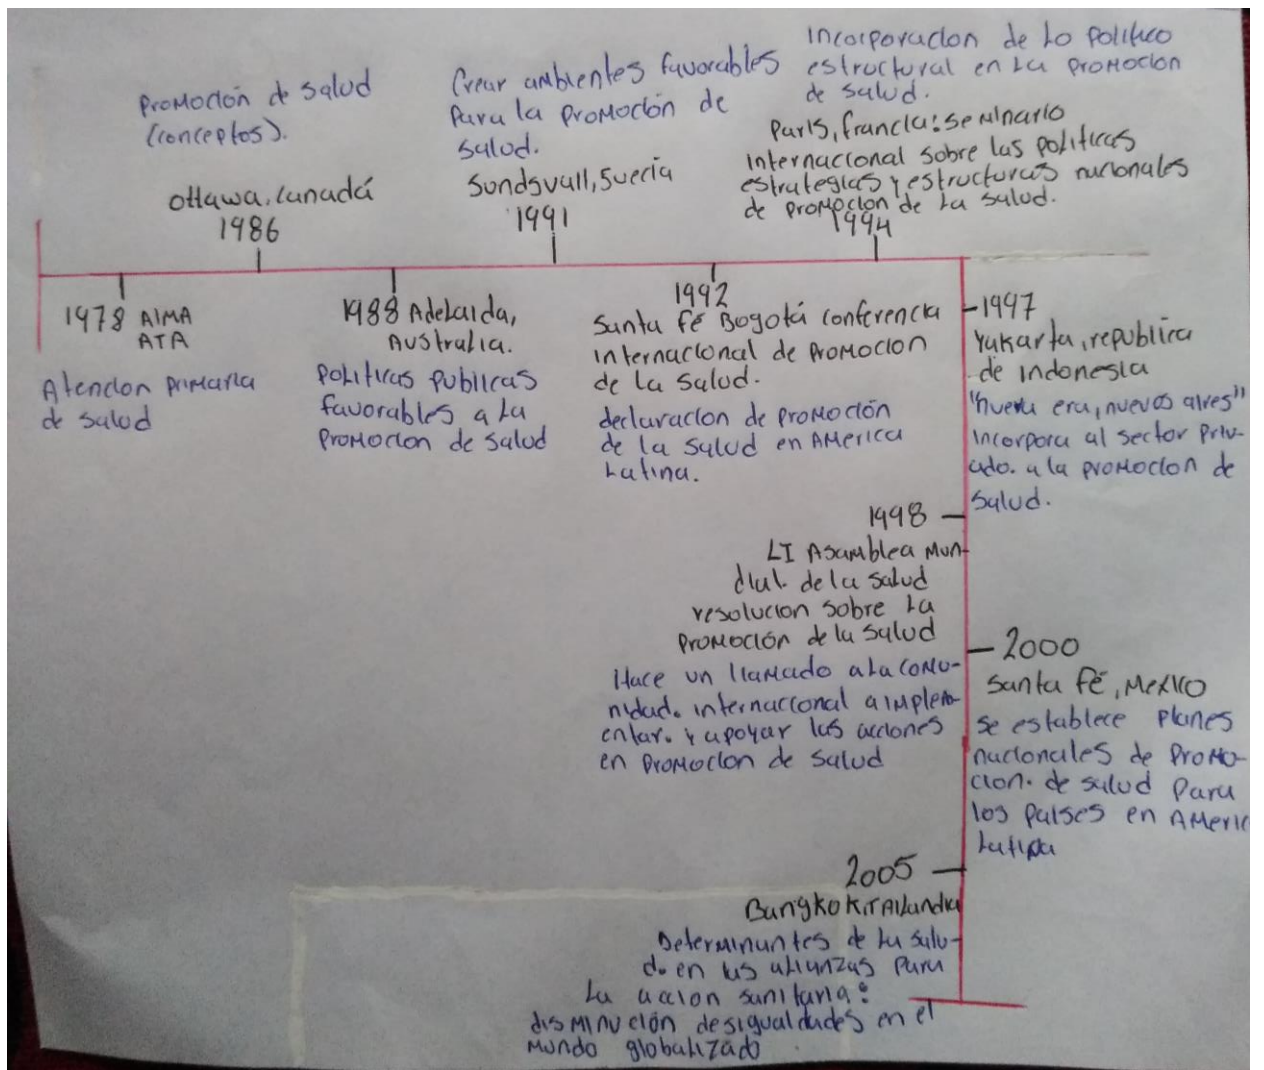 Promoción de salud
(conceptos).
Ottawa, Canadá
1986
Crear ambientes favorables
para la promoción de
salud.
Sundsvall, Suecia
1991
Incorporacion de lo politico
estructural en la promocion
de salud.
Paris, francia: seminario
internacional sobre las politicas
estrategias y estructuras nacionales
de promocion de la salud.
1994
1978 AlMA
ATA
Atencion primaria
de salud
1988 Adelaida,
Australia.
politicas publicas
favorables a la
promocion de salud
1992
Santa fé Bogotá conferencia
internacional de promocion
de la salud.
declaracion de promoción
de la salud en America
Latina.
1997
Yakarta, republica
de indonesia
"nueva era, nuevos aires"
incorpora al sector priv-
ado. a la promocion de
salud.
1998
LI Asamblea Mun-
dial. de la salud
resolucion sobre la
promoción de la salud
Hace un llamado a la comu-
nidad. internacional a implem-
entar. y apoyar las acciones
en promocion de salud
2000
Santa fé, Mexico
se establece planes
nacionales de promo-
cion. de salud para
los paises en Americ
Latina
2005
Bangkok, Tailandia
Determinantes de la salu-
d. en las alianzas para
la accion sanitaria:
disminución desigualdades en el
mundo globalizado